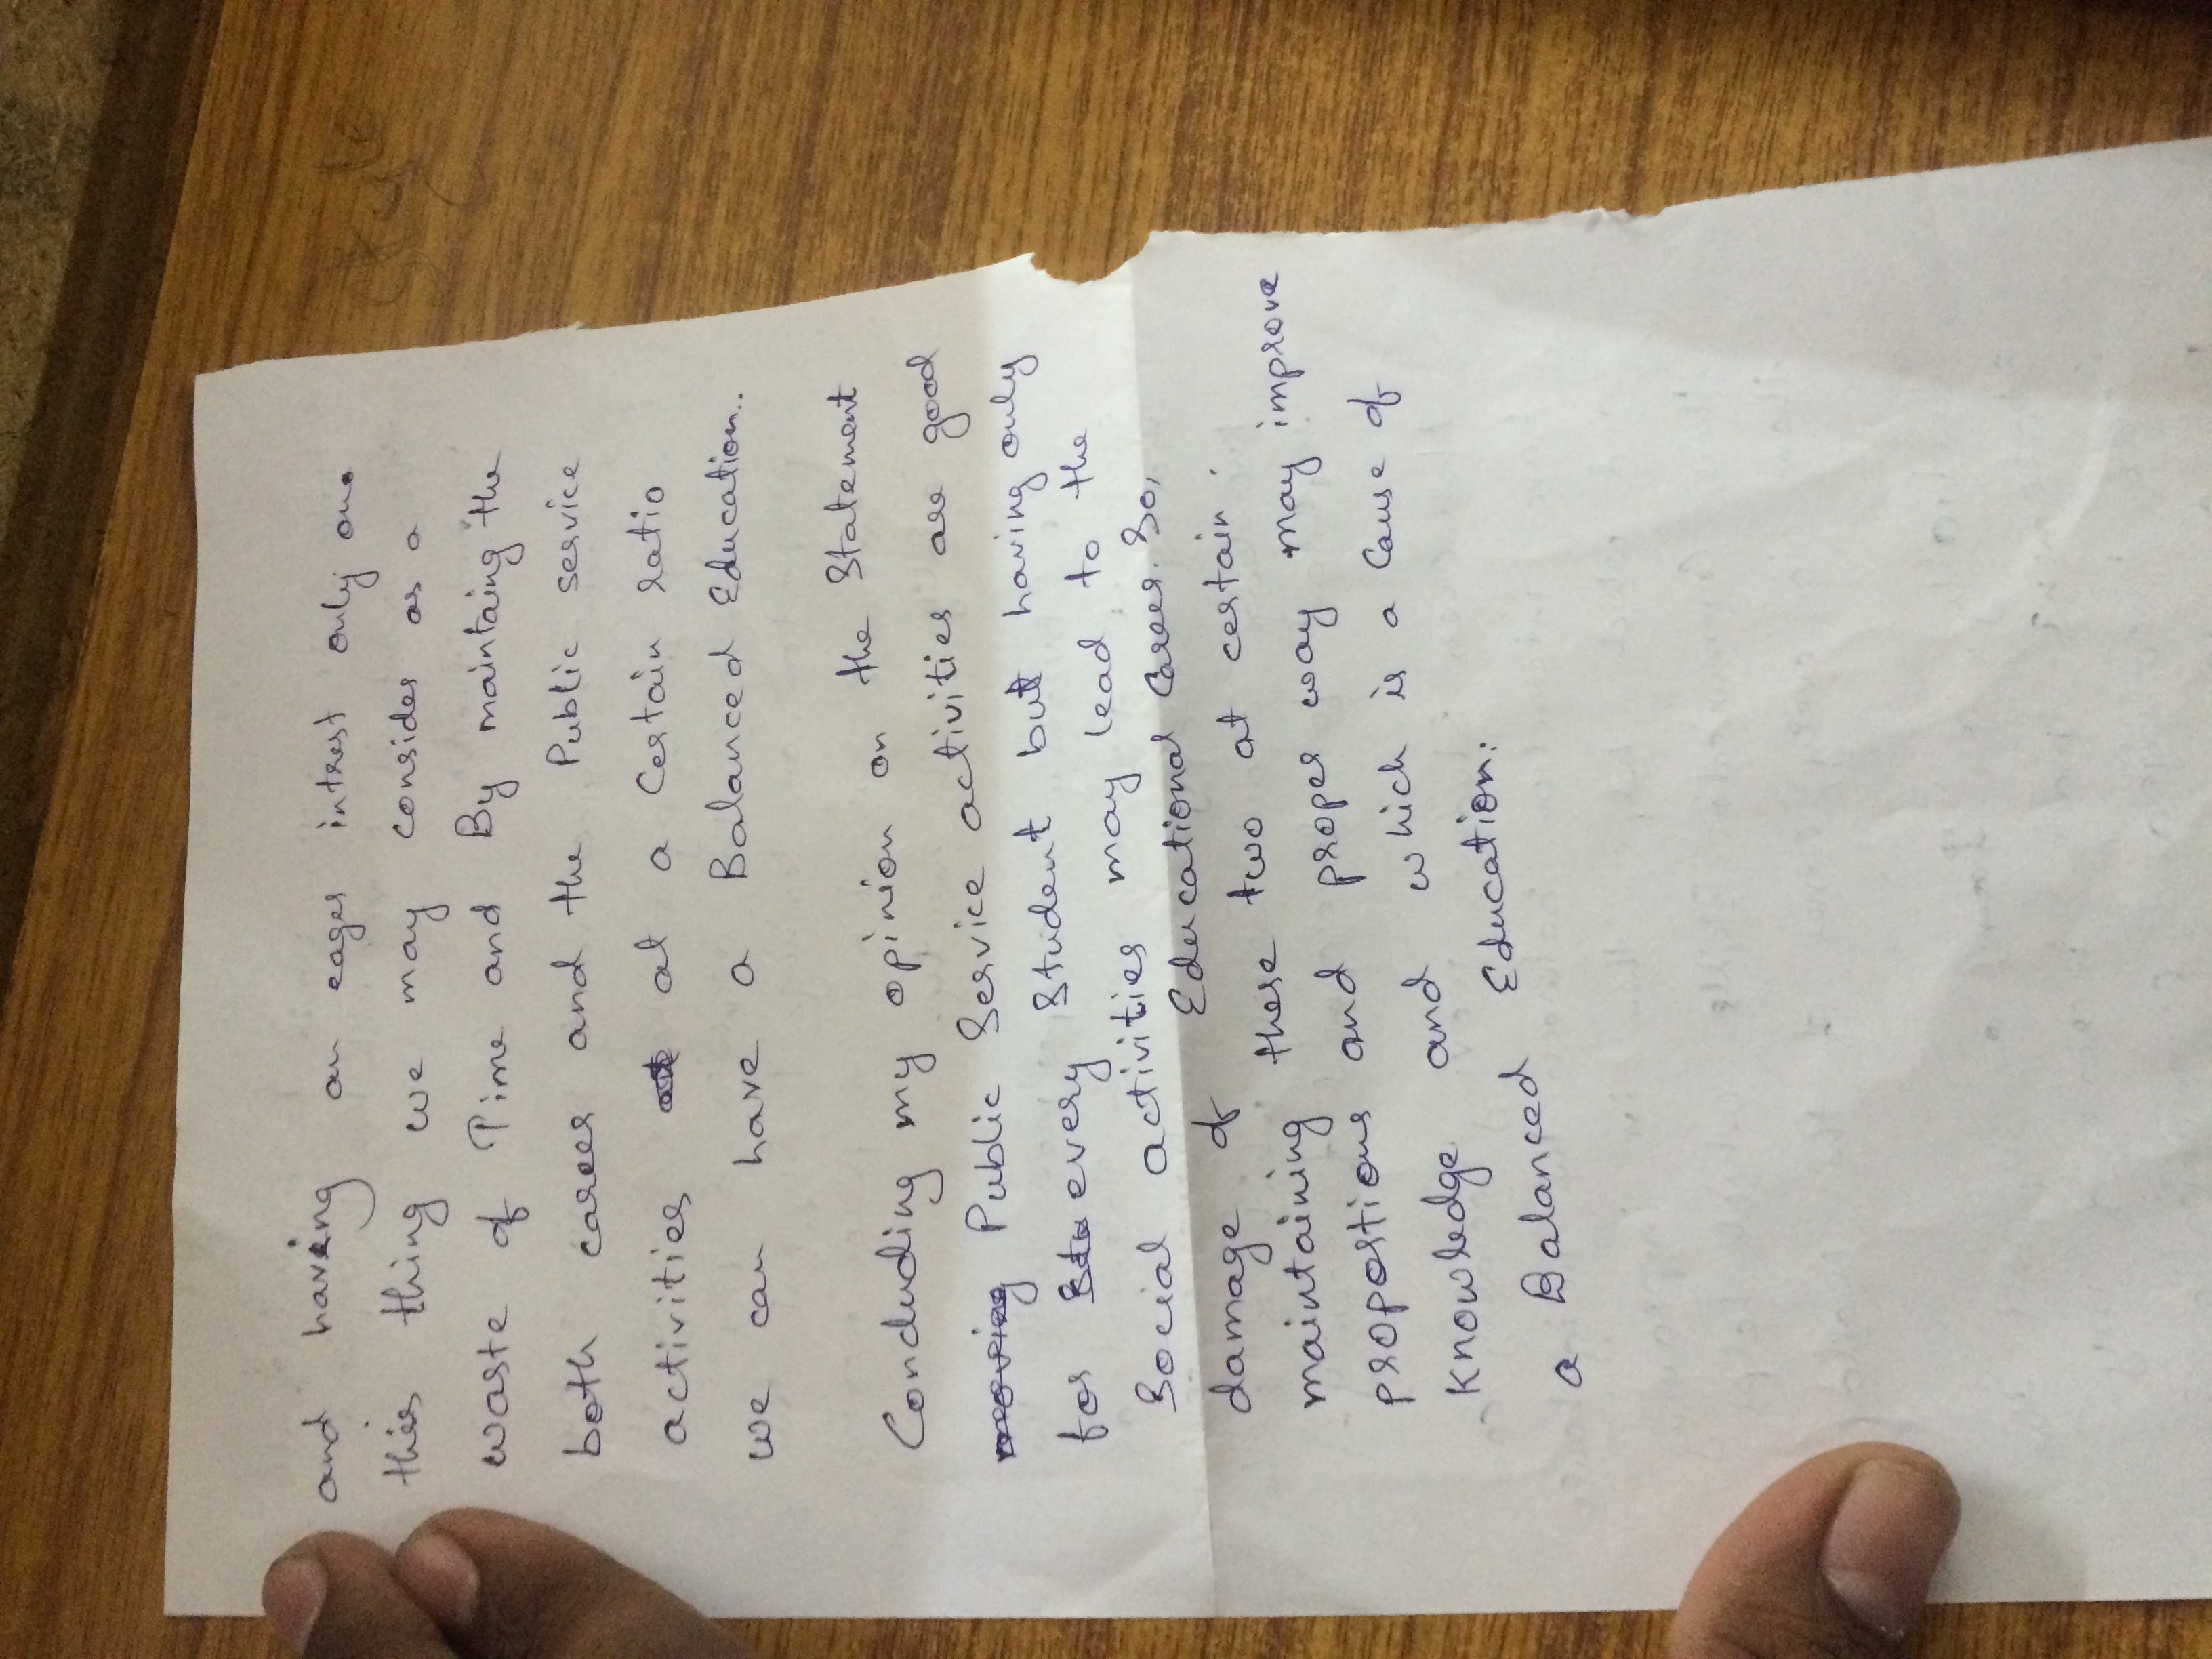 and having an eager intrest only on
this thing we may consider as a
waste of Time and By maintaing the
both career and the Public service
activities at a Certain ratio
we can have a Balanced Education..
Concluding my opinion on the Statement
Public Service activities are good
for every Student but having only
Social activities may lead to the
damage of Educational Career. So,
maintaining these two at certain
proportions and proper way may improve
Knowledge and which is a Cause of
a Balanced Education.